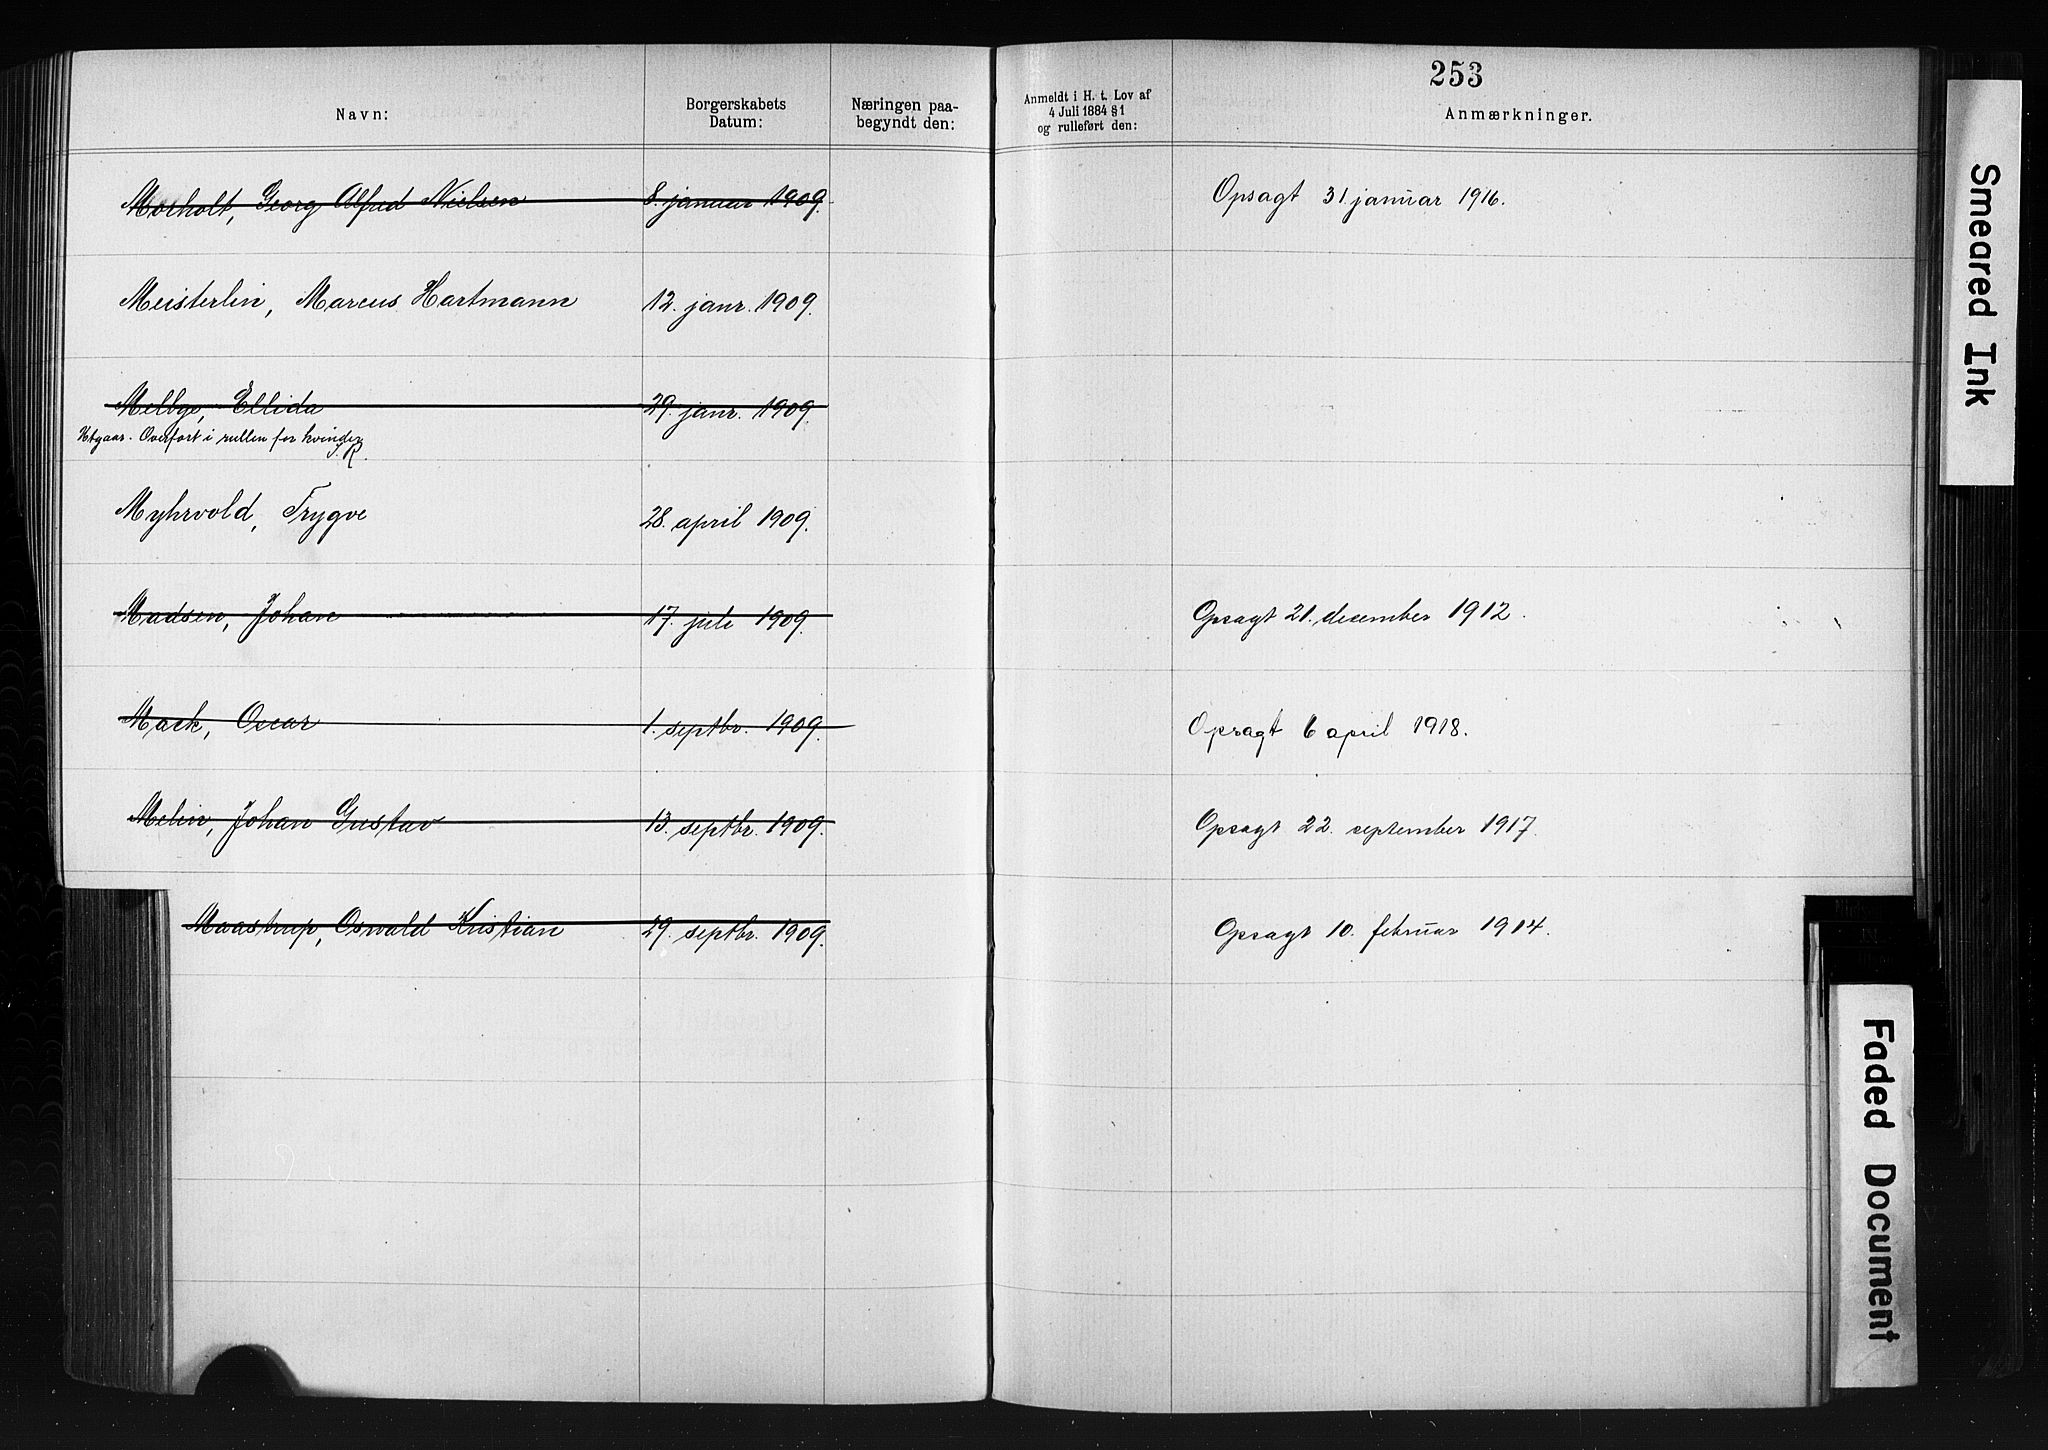 253
Navn:
Borgerskabets Datum:
Næringen paa-
begyndt den:
Anmeldt i H. t. Lov af
4 Juli 1884 § 1
og rulleført den:
Anmærkninger.
Moeholt, Georg Alfred Nielsen 8. januar 1909. Opsagt 31. januar 1916.
Meisterlin, Marcus Hartmann 12. janr. 1909.
Melbye, Ellida 29. janr. 1909.
Utgaar. Overført i rullen for kvinder
Myhrvold, Trygve 28. april 1909.
Madsen, Johan 17. juli 1909. Opsagt 21. december 1912.
Mack, Oscar 1. septbr. 1909. Opsagt 6 april 1918.
Melin, Johan Gustav 13. septbr. 1909. Opsagt 22. september 1917.
Maastrup, Oswald Kristian 29. septbr. 1909. Opsagt 10. februar 1914.
Smeared Ink
Faded Document